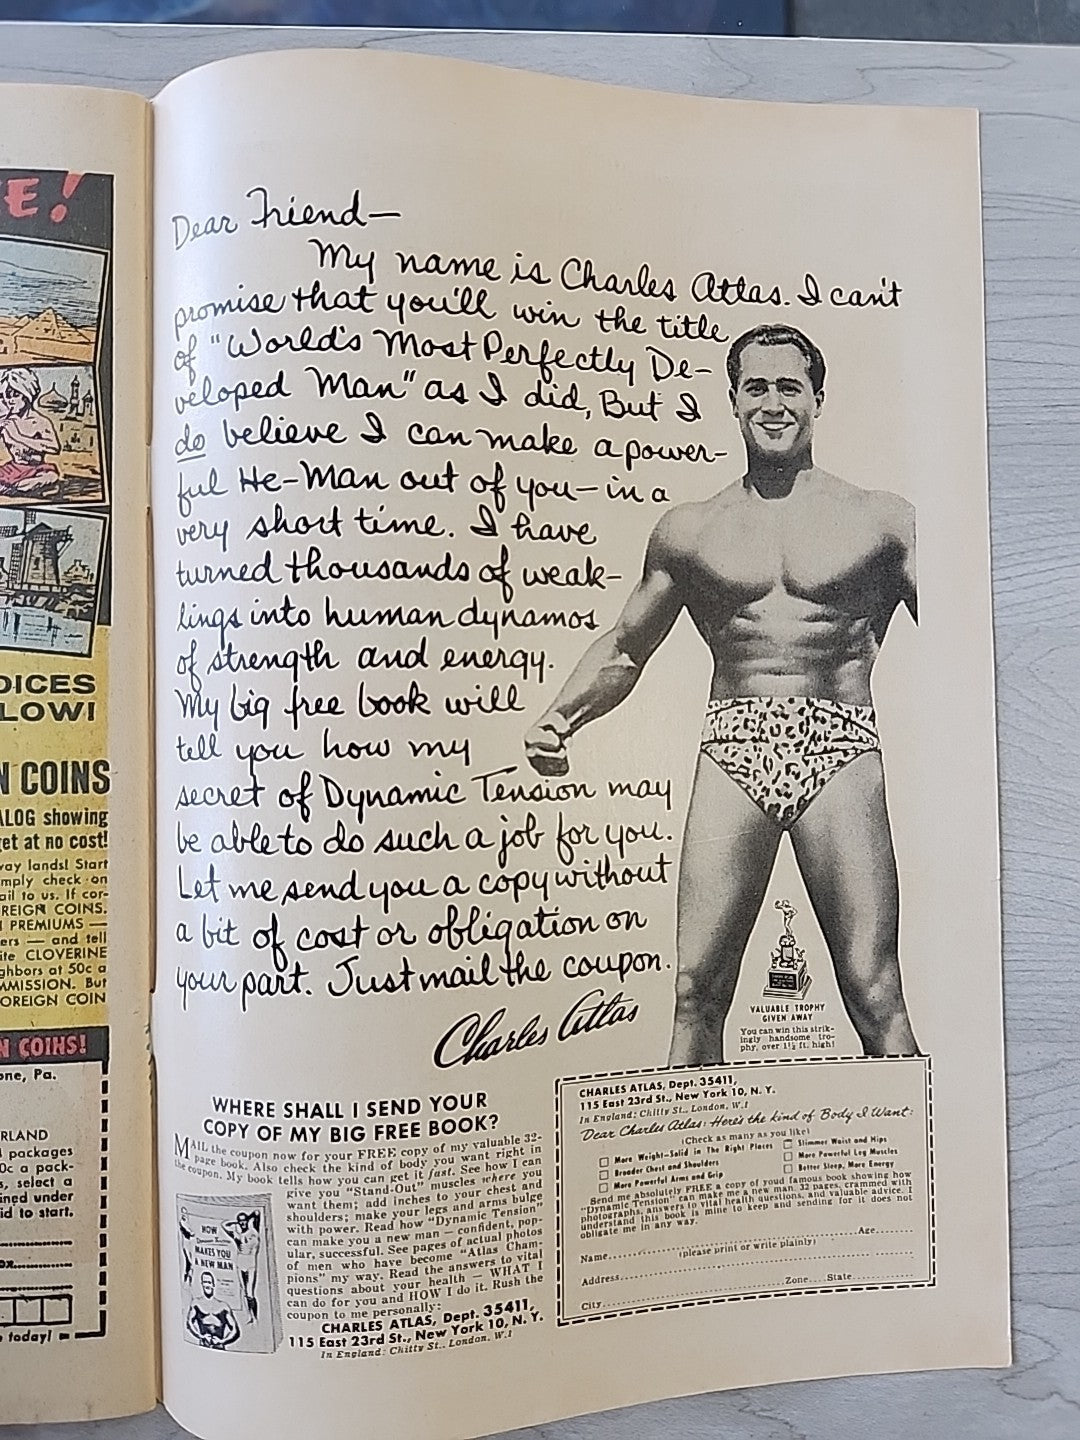 E!
OICES
LOW!
N COINS
ALOG showing
get at no cost!
way lands! Start
mply check on
ail to us. If cor-
REIGN COINS.
PREMIUMS —
ers — and tell
ite CLOVERINE
ghbors at 50c a
MMISSION. But
OREIGN COIN
N COINS!
one, Pa.
RLAND
packages
0c a pack-
s, select a
ined under
id to start.
ox
today!
Dear Friend—
My name is Charles Atlas. I can't
promise that you'll win the title
of "World's Most Perfectly De-
veloped Man" as I did, But I
do believe I can make a power-
ful He-Man out of you—in a
very short time. I have
turned thousands of weak-
lings into human dynamos
of strength and energy.
My big free book will
tell you how my
secret of Dynamic Tension may
be able to do such a job for you.
Let me send you a copy without
a bit of cost or obligation on
your part. Just mail the coupon.
Charles Atlas
VALUABLE TROPHY
GIVEN AWAY
You can win this strik-
ingly handsome tro-
phy, over 1½ ft. high!
WHERE SHALL I SEND YOUR
COPY OF MY BIG FREE BOOK?
MAIL the coupon now for your FREE copy of my valuable 32-
page book. Also check the kind of body you want right in
the coupon. My book tells how you can get it fast. See how I can
give you "Stand-Out" muscles where you
want them; add inches to your chest and
shoulders; make your legs and arms bulge
with power. Read how "Dynamic Tension"
can make you a new man — confident, pop-
ular, successful. See pages of actual photos
of men who have become "Atlas Cham-
pions" my way. Read the answers to vital
questions about your health — WHAT I
can do for you and HOW I do it. Rush the
coupon to me personally:
CHARLES ATLAS, Dept. 35411,
115 East 23rd St., New York 10, N. Y.
In England: Chitty St., London, W.1
HOW
Dynamic Tension
MAKES YOU
A NEW MAN
CHARLES ATLAS, Dept. 35411,
115 East 23rd St., New York 10, N. Y.
In England: Chitty St., London, W.1
Dear Charles Atlas: Here's the kind of Body I Want:
(Check as many as you like)
More Weight—Solid in The Right Places
Broader Chest and Shoulders
More Powerful Arms and Grip
Slimmer Waist and Hips
More Powerful Leg Muscles
Better Sleep, More Energy
Send me absolutely FREE a copy of your famous book showing how
"Dynamic Tension" can make me a new man. 32 pages, crammed with
photographs, answers to vital health questions, and valuable advice. I
understand this book is mine to keep and sending for it does not
obligate me in any way.
Name Age
(please print or write plainly)
Address
City Zone State